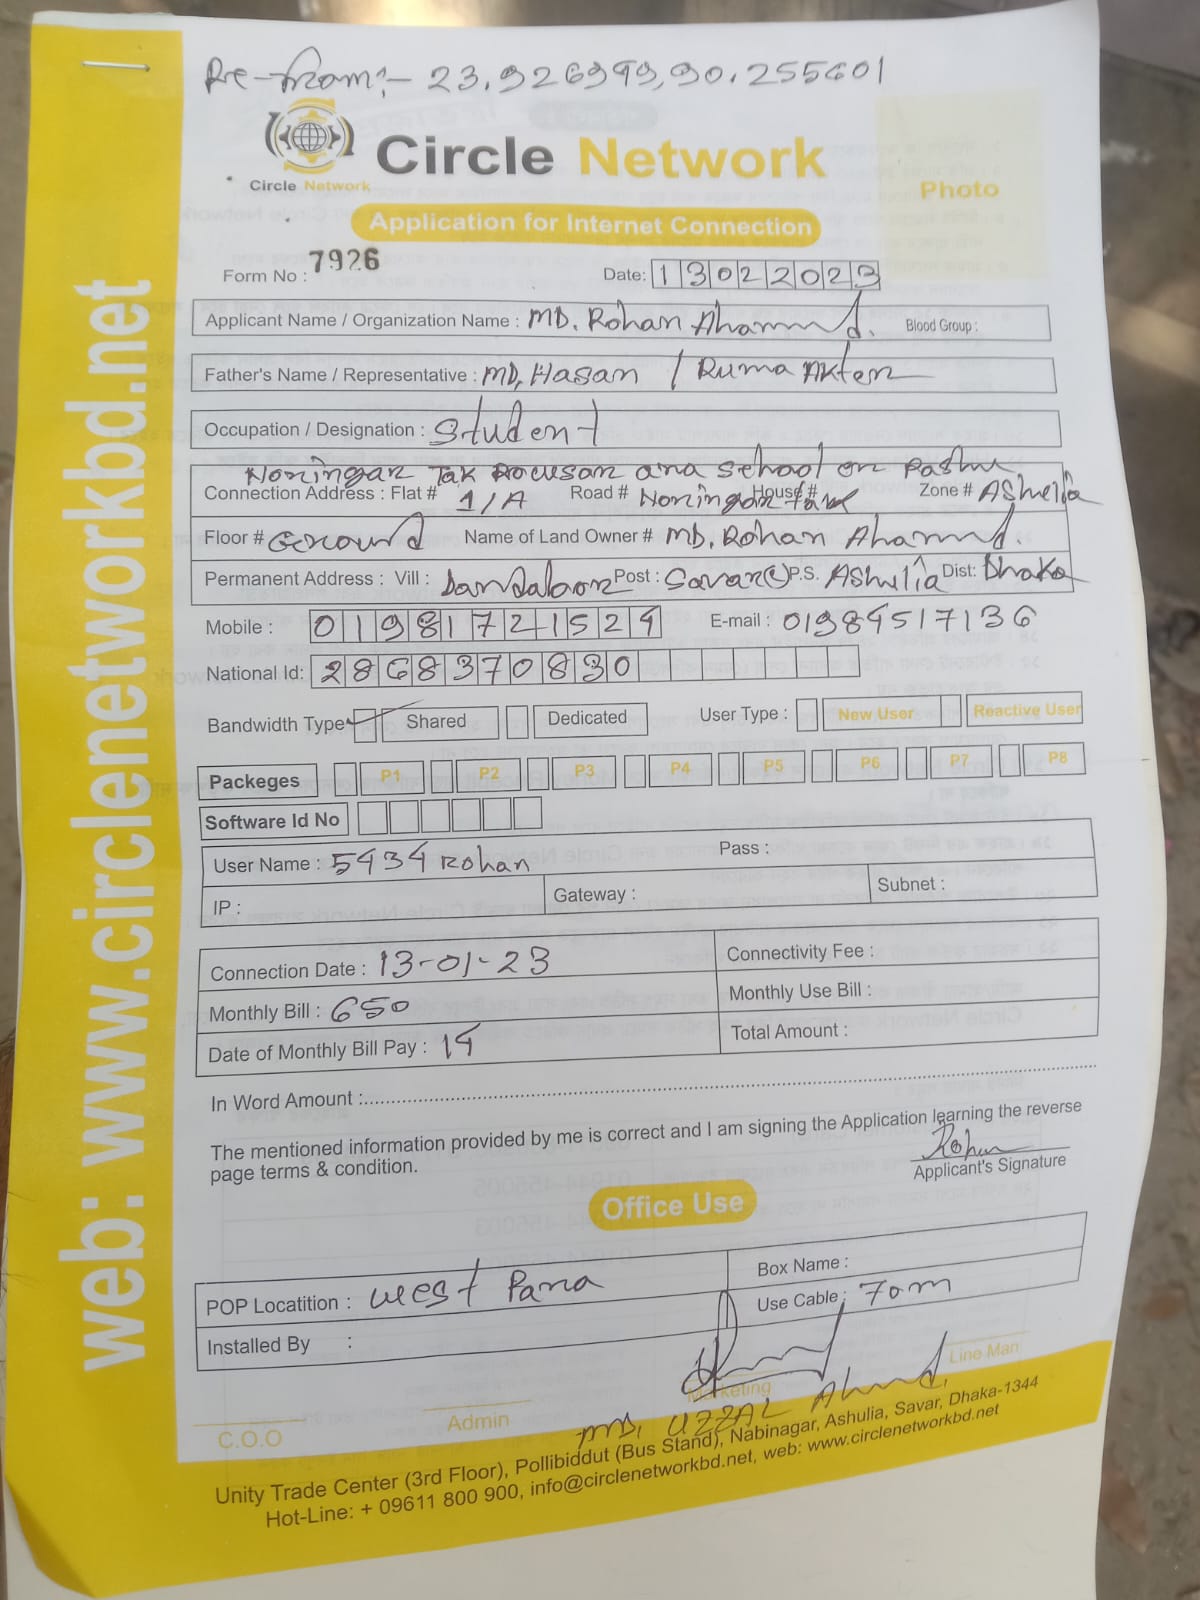 Re-from:- 23.926999,90.255601
Circle Network
Circle Network
Photo
Application for Internet Connection
Form No : 7926
Date: 13022023
Applicant Name / Organization Name : MD. Rohan Ahammd. Blood Group :
Father's Name / Representative : MD, Hasan / Ruma Akter
Occupation / Designation : Student
Noningar Tak and school
Connection Address : Flat # 1/A Road # House # Zone # Ashulia
Floor # Ground Name of Land Owner # MD. Rohan Ahammd.
Permanent Address : Vill : Post : Savar P.S. Ashulia Dist: Dhaka
Mobile : 01981721524 E-mail : 01984517136
National Id: 2868370830
Bandwidth Type Shared Dedicated User Type : New User Reactive User
Packeges P1 P2 P3 P4 P5 P6 P7 P8
Software Id No
User Name : 5434 Rohan Pass :
IP : Gateway : Subnet :
Connection Date : 13-01-23 Connectivity Fee :
Monthly Bill : 650 Monthly Use Bill :
Date of Monthly Bill Pay : 14 Total Amount :
In Word Amount :
The mentioned information provided by me is correct and I am signing the Application learning the reverse
page terms & condition.
Rohan
Applicant's Signature
Office Use
POP Locatition : west Para Box Name :
Use Cable : 70m
Installed By :
C.O.O Admin Marketing Line Man
MD. UZZAL Ahmd.
Unity Trade Center (3rd Floor), Pollibiddut (Bus Stand), Nabinagar, Ashulia, Savar, Dhaka-1344
Hot-Line: + 09611 800 900, info@circlenetworkbd.net, web: www.circlenetworkbd.net
web: www.circlenetworkbd.net